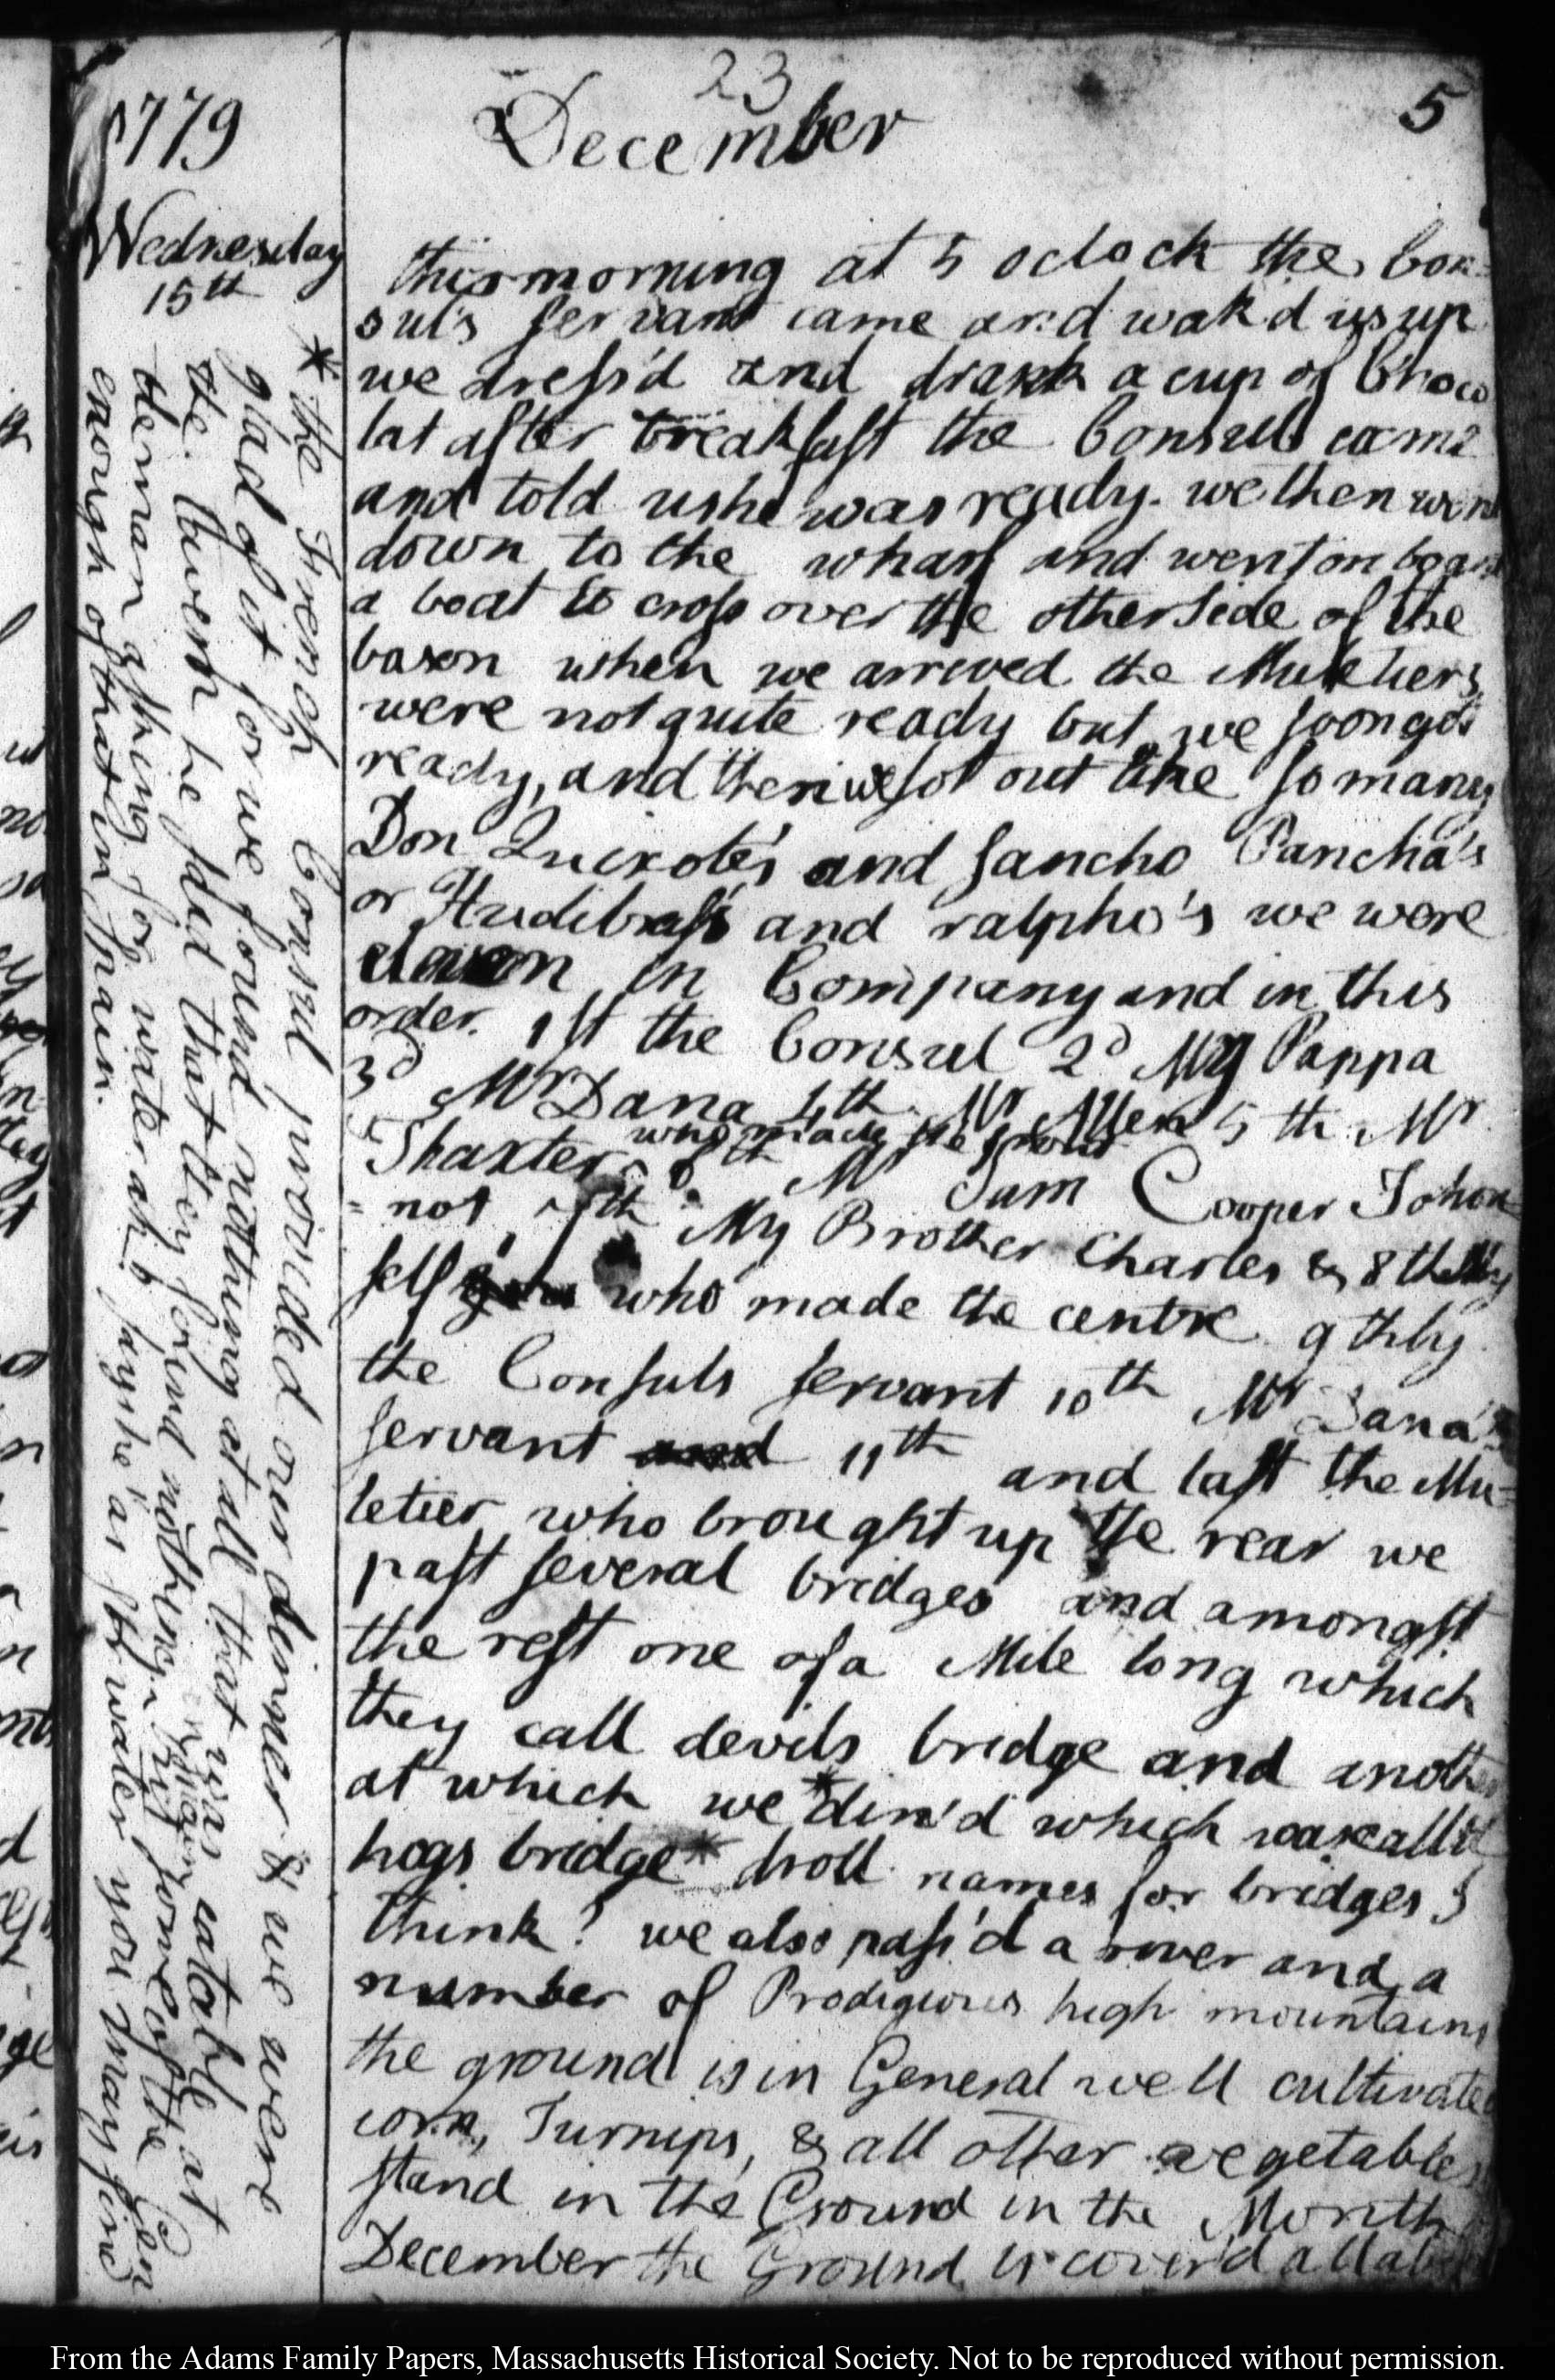 1779
23
December
5
Wednesday
15th
this morning at 5 oclock the Con=
sul's servant came and wak'd us up
we dress'd and drank a cup of Choco
lat after breakfast the Consul came
and told us he was ready. we then went
down to the wharf and went on board
a boat to cross over the other side of the
bason when we arrived the Muletiers
were not quite ready but we soon got
ready, and then we sot out like so many
Don Quixote's and Sancho Pancha's
or Hudibras's and ralpho's we were
eleven in Company and in this
order. 1st the Consul 2d My Pappa
3d Mr Dana 4th Mr Allen 5th Mr
Thaxter
who made the
6th Mr Sam Cooper Johon
=not, 7th My Brother Charles & 8th My
self who made the centre 9thly
the Consuls servant 10th Mr Dana's
servant and 11th and last the Mu=
letier who brought up the rear we
past several bridges and amongst
the rest one of a Mile long which
they call devils bridge and another
at which we *din'd which was call'd
hogs bridge* droll names for bridges I
think? we also pass'd a river and a
number of Prodigious high mountains
the ground is in General well cultivated
corn, Turnips, & all other vegetables
stand in the Ground in the Month
December the Ground is cover'd all
* the French Consul provided our dinner & we were
glad of it for we found nothing at all that was eatable at
the tavern he said that they found nothing but some of the Gen
tleman asking for water ah! says he as for water you may find
enough of that in Spain.
From the Adams Family Papers, Massachusetts Historical Society. Not to be reproduced without permission.